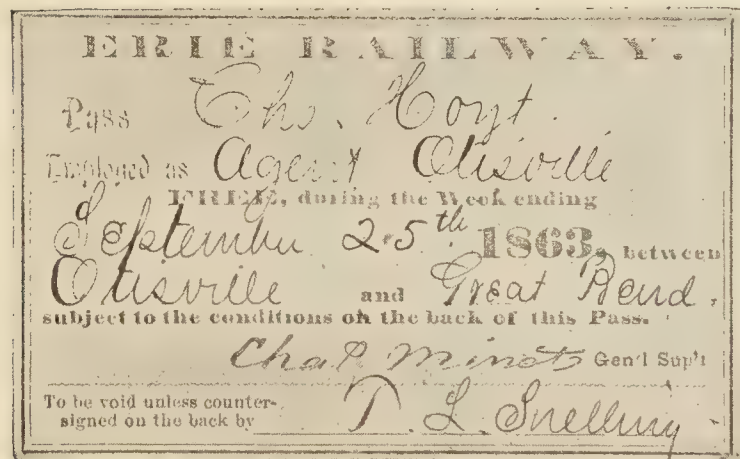 ERIE RAILWAY.
Pass Chs. Hoyt.
Employed as Agent Otisville
FREE, during the Week ending
September 25th 1863, between
Otisville and Great Bend.
subject to the conditions on the back of this Pass.
Chas Minot Gen'l Sup't
To be void unless counter-
signed on the back by T. L. Snelling